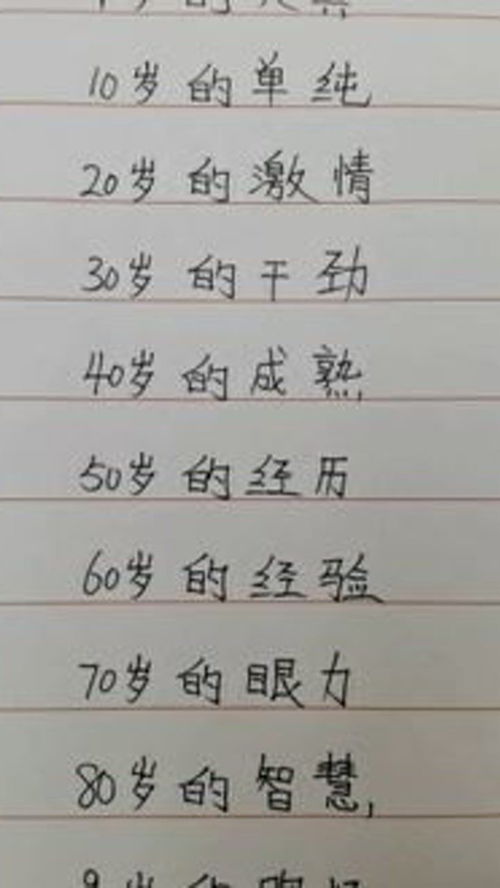 10岁的单纯
20岁的激情
30岁的干劲
40岁的成熟
50岁的经历
60岁的经验
70岁的眼力
80岁的智慧,